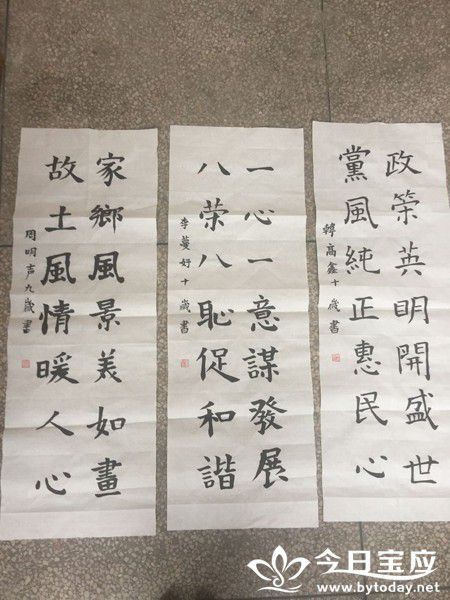 政策英明開盛世
黨風純正惠民心
韓高鑫十歲書
一心一意謀發展
八荣八恥促和諧
李蔓妤十歲書
家鄉風景美如畫
故土風情暖人心
周明声九歲書
今日宝应
www.bytoday.net